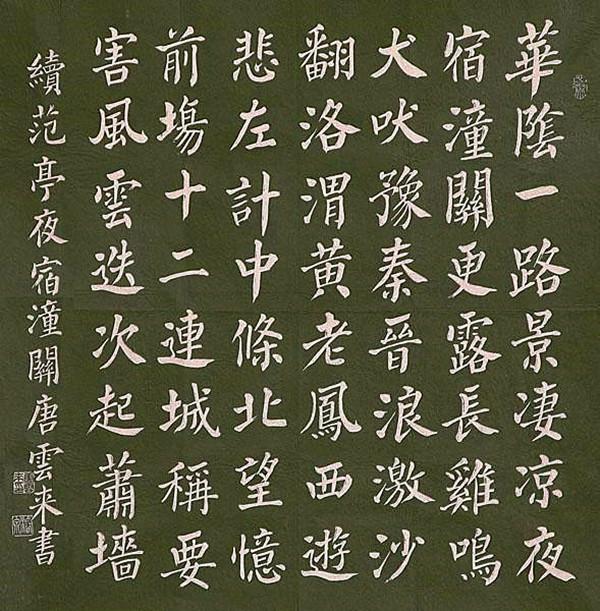 華陰一路景凄凉夜
宿潼關更露長雞鳴
犬吠豫秦晉浪激沙
翻洛渭黃老鳳西遊
悲左計中條北望憶
前塲十二連城稱要
害風雲迭次起蕭墻
續范亭夜宿潼關唐雲来書